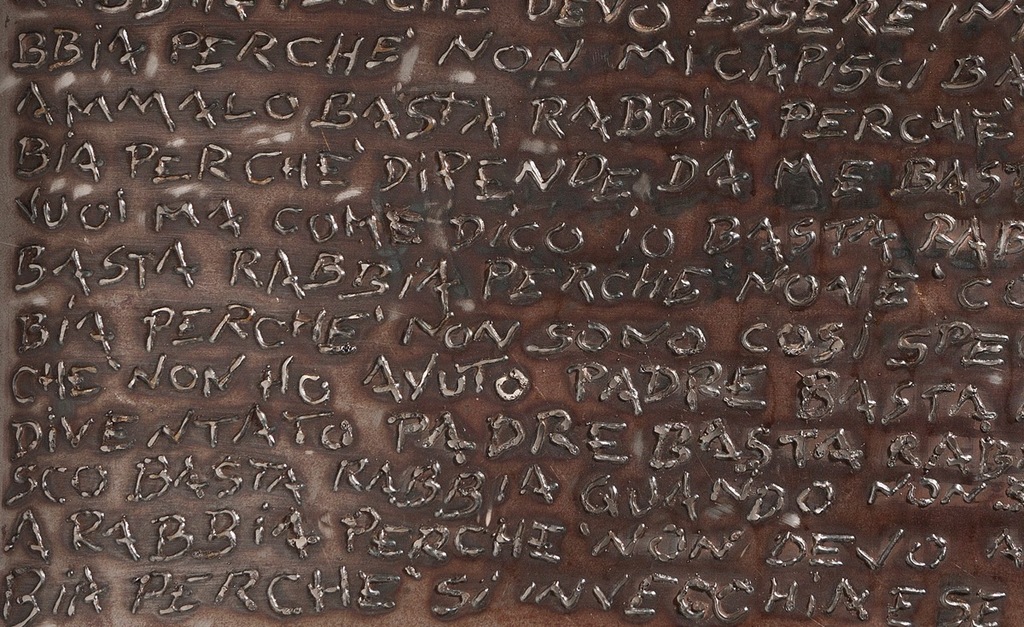 RABBIA PERCHE' DEVO ESSERE IN
BBIA PERCHE' NON MI CAPISCI BA
AMMALO BASTA RABBIA PERCHE'
BIA PERCHE' DIPENDE DA ME BAST
VUOI MA COME DICO IO BASTA RAB
BASTA RABBIA PERCHE NON E' CO
BIA PERCHE' NON SONO COSI SPE
CHE NON HO AVUTO PADRE BASTA
DIVENTATO PADRE BASTA RABB
SCO BASTA RABBIA QUANDO NON S
A RABBIA PERCHE' NON DEVO A
BIA PERCHE' SI INVECCHIA E SE